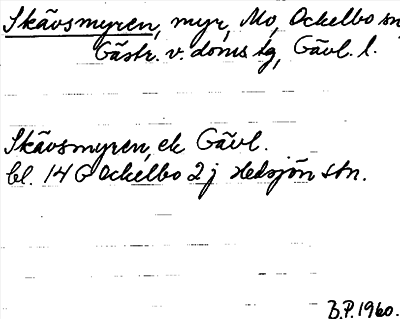 Skävsmyren, myr, Mo, Ockelbo sn
Gästr. v. doms tg, Gävl. l.
Skävsmyren, ek Gävl.
bl. 14 G Ockelbo 2 j Hedsjön stn.
B.P. 1960.